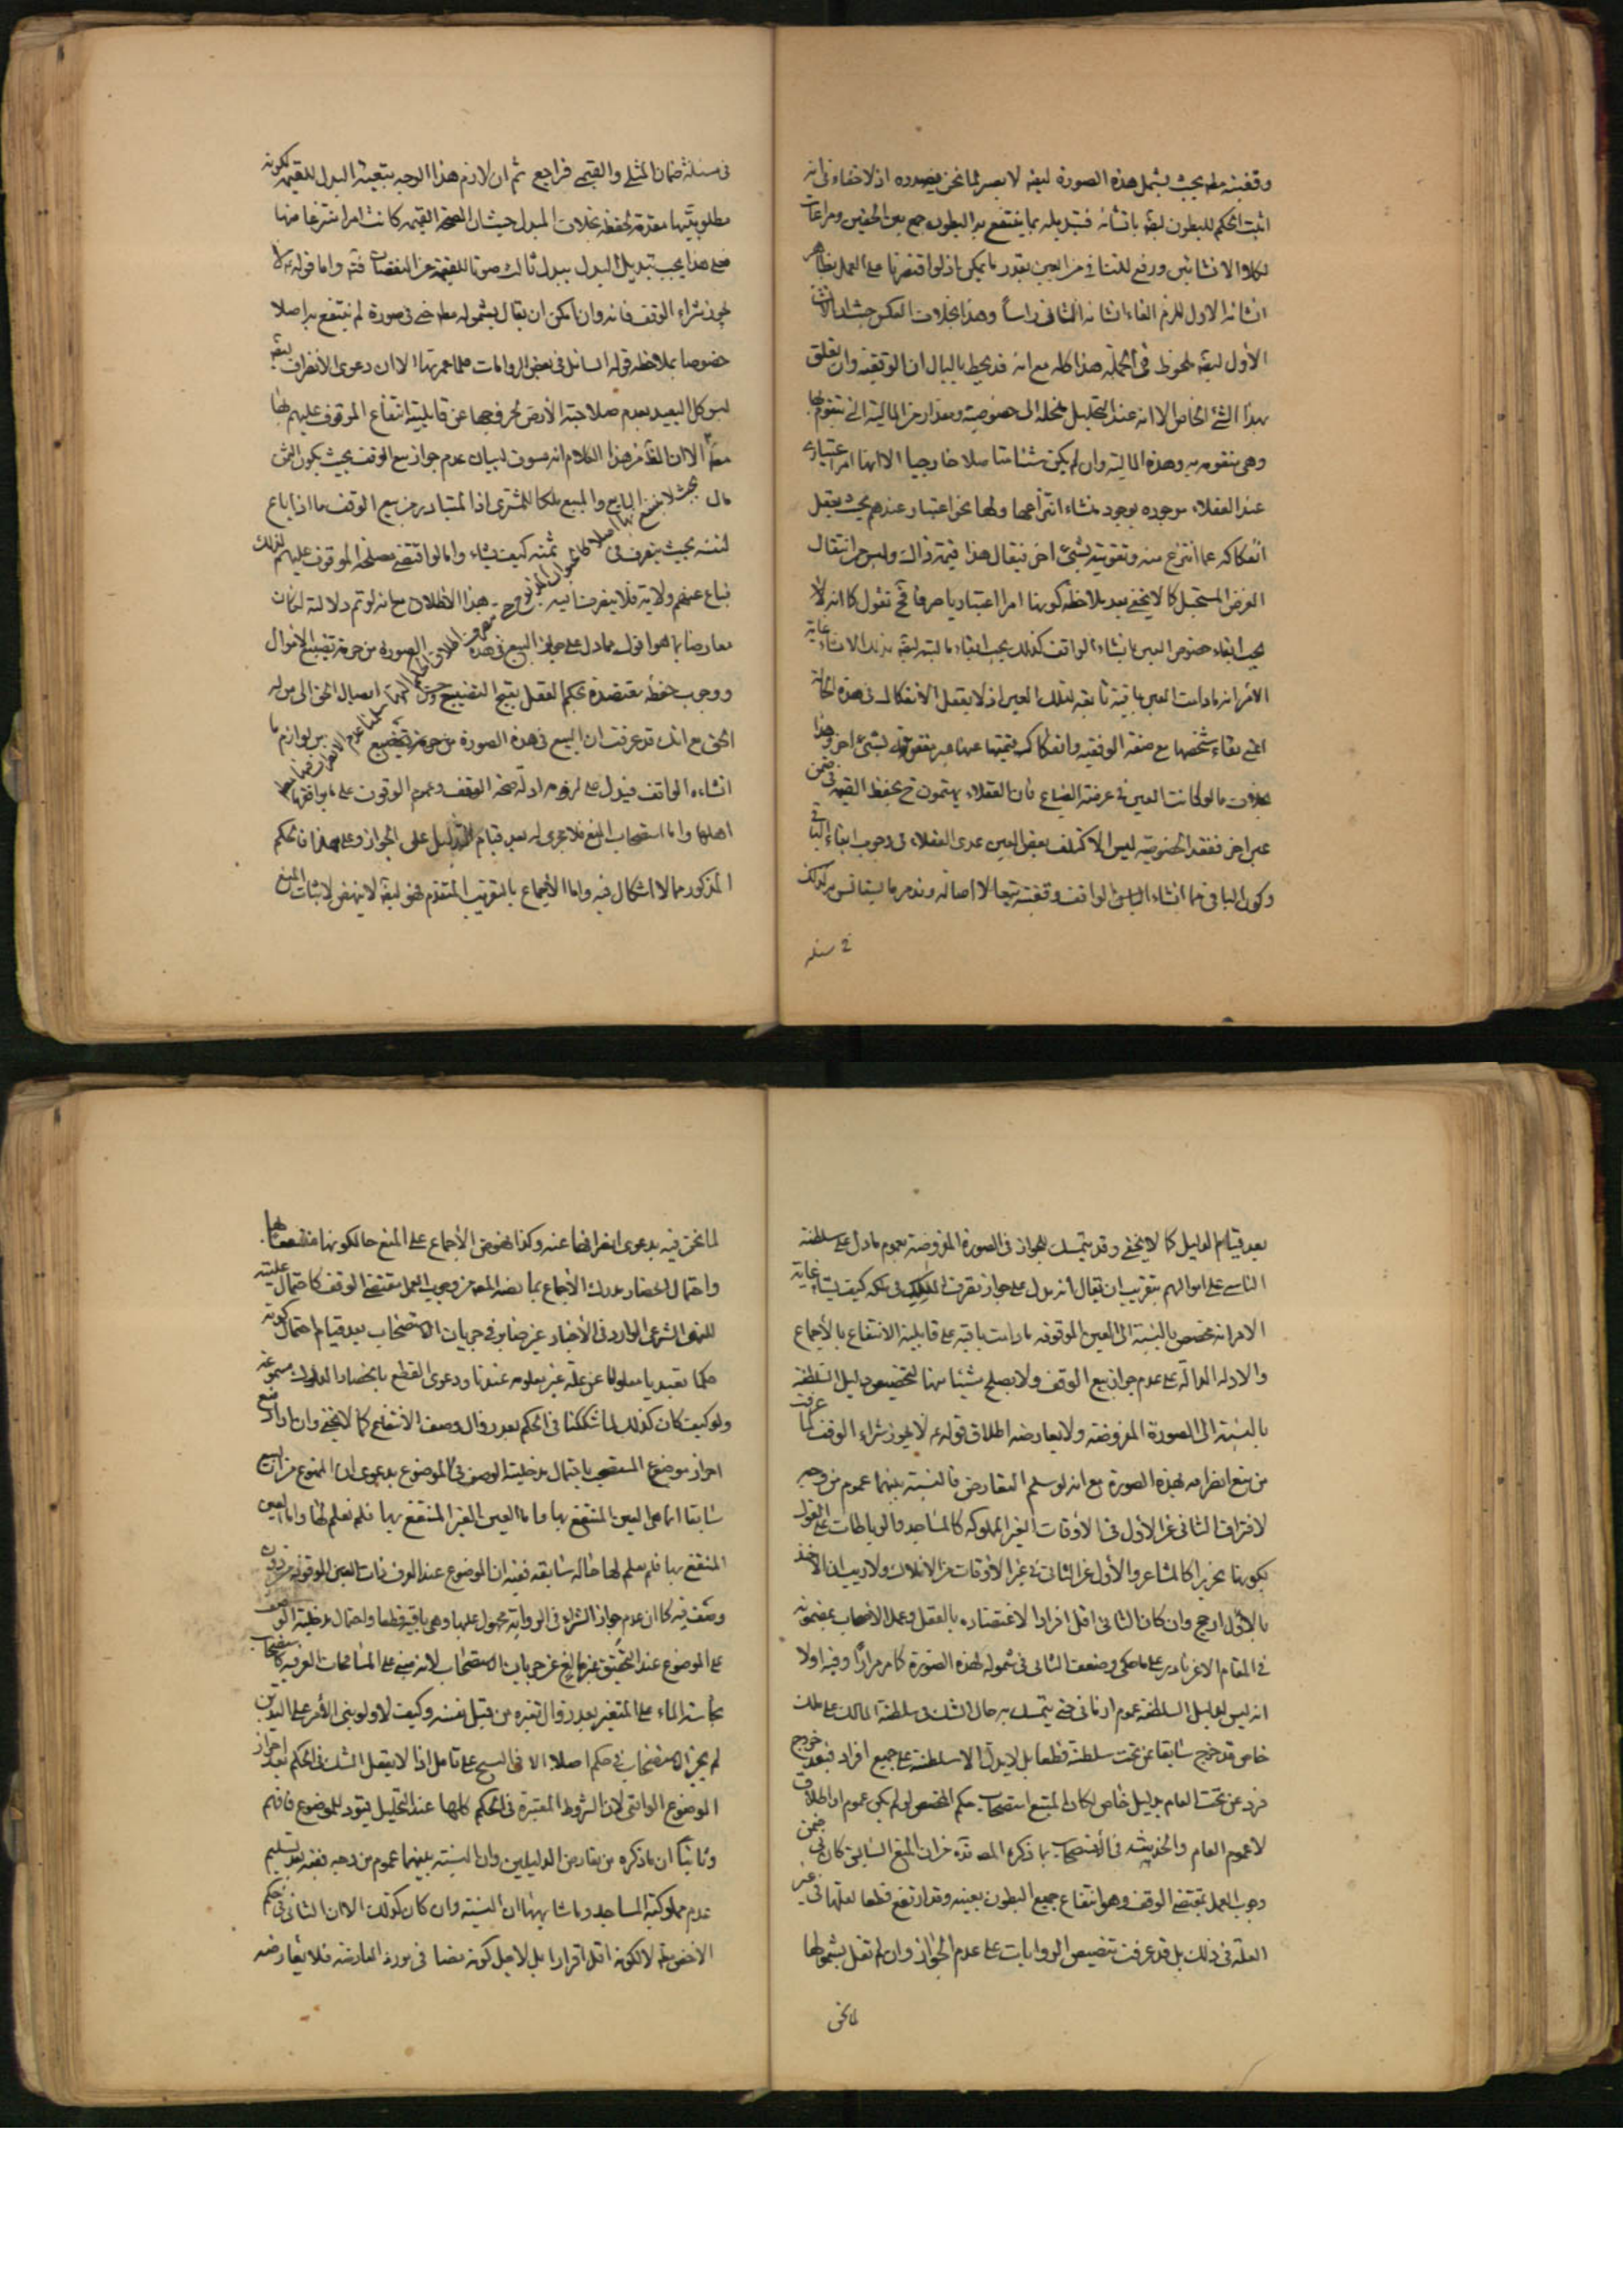 وقفيته مط بحيث يشمل هذه الصورة ايضا لا يصير لما نحن بصدده اذ لا خفاء فى انه
اثبت الحكم للبطون ايضا بانشائه فتبديله بما ينتفع به البطون جمع بين الحقين ومراعات
لكلا الانشائين ورفع للتنافى من البين بقدر ما يمكن اذ لو اقتصرنا على العمل بظاهر
انشائه الاول للزم الغاء انشائه الثانى راسا وهذا بخلاف العكس حيث ان الانشاء
الأول ايضا ملحوظ فى الجملة هذا كله مع انه قد يخطر بالبال ان الوقفية وان تعلق
بهذا الشئ الخاص الا انه عند التحليل منحلة الى خصوصية ومقدار من المالية التى يتقوم بها
وهى متقومه به وهذه المالية وان لم يكن شيئا متاصلا خارجيا الا انها امر اعتبارى
عند العقلاء موجوده بوجود منشاء انتزاعها ولها نحو اعتبار عندهم بحيث يعقل
انفكاكه عما انتزع منه وتقويته بشئ اخر فيقال هذا قيمة ذاك وليس من انتقال
العرض المستحيل كما لا يخفى بعد ملاحظة كونها امرا اعتباريا صرفا فح نقول كما انه
يجب ابقاء خصوص العين بانشاء الواقف كذلك يجب ابقاء ماليته ايضا بذلك الانشاء غاية
الامر انه مادامت العين باقية تابعة لتلك العين اذ لا يعقل الانفكاك فى هذه الحالة
اعنى بقاء شخصها مع صفة الوقفيه وانفكاك قيمتها عنها بشئ اخر وهذا
بخلاف ما لو كانت العين فى عرضة الضياع فان العقلاء يهتمون ح بحفظ القيمة فى ضمن
عين اخر ففقد الخصوصية ليس الا كتلف بعض العين عدى العقلاء فى وجوب ابقاء الباقى
وكون الباقى مما انشاء الواقف وقفيته تبعا لا اصالة وقد مر ما يستانس به لذلك
فى مسئله
فى مسئلة ضمان المثلى والقيمى فراجع ثم ان لازم هذا الوجه تبعية البدل للقيمة لكونه
مطلوبيتها مقدمة لحفظه بخلاف المبدل حيث ان القيمة كانت امرا منتزعا منها
فعلى هذا يجب تبديل البدل ببدل ثالث صونا للقيمة عن النقصان فتم واما قوله لا
يجوز شراء الوقف فانه وان امكن ان يقال بشموله مط حتى فى صورة لم ينتفع به اصلا
خصوصا بملاحظة قول السائل فى بعض الروايات الا ان دعوى الأنصراف ايضا
ليس كل البعيد بعدم صلاحية الأرض لخروجها عن قابلية انتفاع الموقوف عليهم بها
الا ان الظ من هذا الكلام انه مسوق لبيان عدم جواز بيع الوقف بحيث يكون الثمن
مال البايع والمبيع ملكا للمشترى اذ المتبادر من بيع الوقف ما اذا باع
لنفسه بحيث يتصرف فى ثمنه كيف يشاء واما لو اقتضى مصلحة الموقوف عليهم لذلك
فباع عنهم ولاية فلا هذا الاطلاق مع انه لو تم دلالته لكان
معارضا بما هو اقوى مما دل على جواز البيع فى هذه الصورة من حرمة تضييع الاموال
ووجوب حفظه معتضدة بحكم العقل بقبح التضييع ايصال الحق الى من له
الحق مع انك قد عرفت ان البيع فى هذه الصورة من لوازم ما
انشاءه الواقف فيدل على لزومه ادلة صحة الوقف وعموم الوقوف على ما يوقفها
اهلها واما استصحاب المنع فلا مجرى له بعد قيام الدليل على الجواز وعلى هذا فالحكم
المذكور مما لا اشكال فيه واما الأجماع بالتقريب المتقدم فهو ايضا لا ينهض لاثبات المنع
بعد قيام الدليل كما لا يخفى وقد يتمسك للجواز فى الصورة المفروضة بعموم ما دل على سلطنة
الناس على اموالهم بتقريب ان يقال انه يدل على جواز تصرف المالك فى ملكه كيف يشاء غاية
الامر انه مخصص بالنسبة الى العين الموقوفه ما دامت باقية على قابلية الانتفاع بالأجماع
والادله الدالة على عدم جواز بيع الوقف ولا يصلح شيئا منها لتخصيص دليل السلطنة
بالنسبة الى الصورة المفروضة ولا يعارضه اطلاق قوله لا يجوز شراء الوقف لما عرفت
من منع انصرافه لهذه الصورة مع انه لو سلم التعارض فالنسبة بينهما عموم من وجه
لافتراق الثانى عن الأول فى الاوقاف الغير المملوكه كالمساجد والرباطات على القول
بكونها تحريرا كالمشاعر والأول عن الثانى فى غير الأوقاف من الاملاك ولا ريب ان الاخذ
بالأول ارجح وان كان الثانى اقل افرادا لاعتضاده بالعقل وعمل الاصحاب بمضمونه
فى المقام الا من نادر على ما حكى وضعف الثانى فى شموله لهذه الصورة كما مر مرارا وفيه اولا
انه ليس لدليل السلطنة عموم ازمانى حتى يتمسك به حال الشك فى سلطنة المالك على ملك
خاص قد خرج سابقا عن تحت سلطنته قطعا بل لا يدل الا سلطنته على جميع افراد فبعد خروج
فرد عن تحت العام بدليل خاص لكان المتبع استصحاب حكم المخصص لو لم يكن عموم او اطلاق
لا عموم العام والخدشه فى الاستصحاب بما ذكره المصه قده من ان المنع السابق كان فى ضمن
وجوب العمل بمقتضى الوقف وهو انتفاع جميع البطون بعينه وقد ارتفع قطعا لعليتها فى غير
العلة فى ذلك بل قد عرفت تنصيص الروايات على عدم الجواز وان لم نقل بشمولها
لما نحن
لما نحن فيه بدعوى انصرافها عنه وكذا نهوض الأجماع على المنع حال كونها منتفعا بها
واحتمال انحصار مدرك الأجماع بما ذكره المصه من وجوب العمل بمقتضى الوقف كاحتمال عليته
للنهى الشرعى الوارد فى الأخبار غير ضاير فى جريان الاستصحاب بعد قيام احتمال كونه
حكما تعبديا معلولا عن علة غير معلومه عندنا ودعوى القطع بانحصار المدرك ممنوعة
ولو كيف كان كذلك لما شككنا فى الحكم بعد زوال وصف الانتفاع كما لا يخفى وان
احراز موضوع المستصحب باحتمال مدخلية الوصف فى الموضوع بدعوى ان الممنوع من البيع
سابقا انما هى العين المنتفع بها واما العين الغير المنتفع بها فلم نعلم لها واما العين
المنتفع بها فلم نعلم لها حالة سابقه ففيه ان الموضوع عند العرف ذات العين الموقوفه من دون
وصف فيه كما ان عدم جواز الشراء فى الرواية محمول عليها وهى باقية قطعا واحتمال مدخلية الوصف
على الموضوع عند التحقيق غير مانع عن جريان الاستصحاب لانه مبنى على المسامحات العرفيه كاستصحاب
نجاسة الماء على المتغير بعد زوال تغيره من قبل نفسه وكيف لا ولو بنى الأمر على التدين
لم يجر الاستصحاب فى حكم اصلا الا فى النسخ على تامل اذ لا يعقل الشك فى الحكم بعد احراز
الموضوع الواقعى لان الشروط المعتبرة فى الحكم كلها عند التحليل قيود للموضوع فافهم
وثانيا ان ما ذكره من تعارض الدليلين وان النسبة بينهما عموم من وجه ففيه بعد تسليم
عدم مملوكية المساجد وما شابهها ان النسبة وان كان كذلك الا ان الثانى فى حكم
الاخص مط لا لكونه اقل افرادا بل لاجل كونه نصا فى مورد المعارضة فلا يعارضه